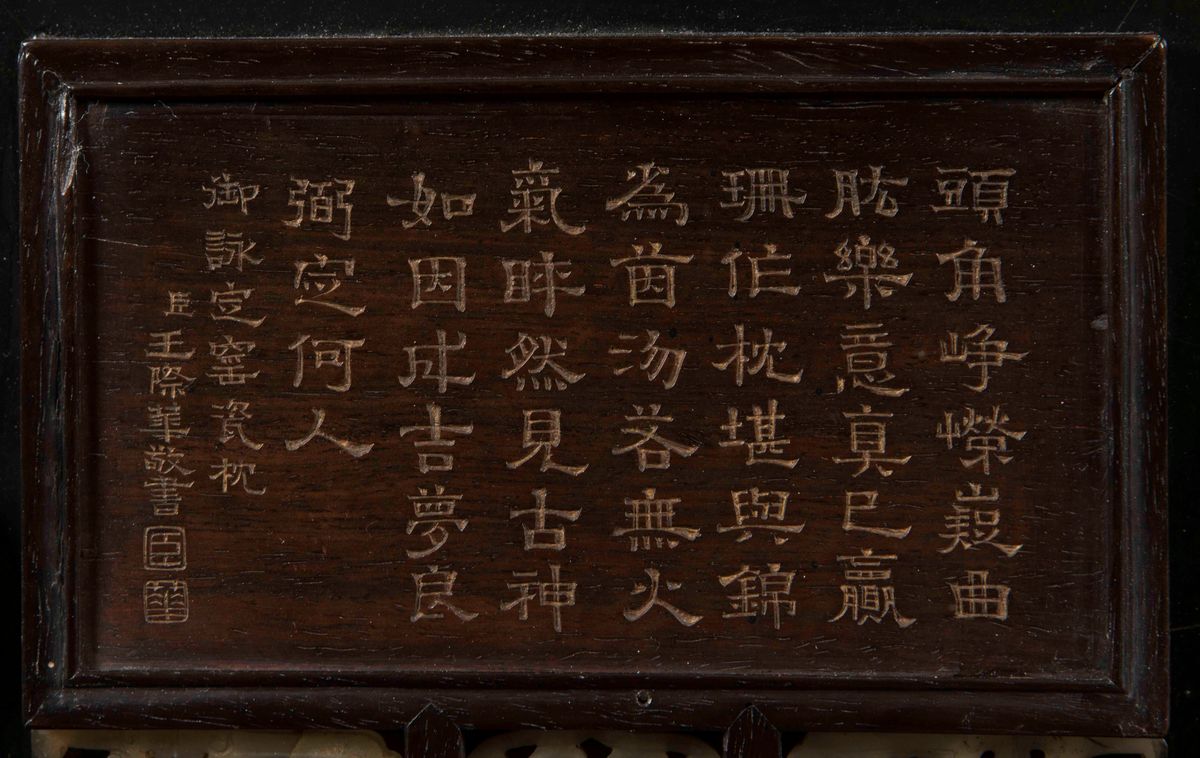 頭角崢嶸嶷曲
肱樂意真已贏
珊作枕堪與錦
為茵沕若無火
氣睟然見古神
如因成吉夢良
弼定何人
御詠定窯瓷枕
臣王際華敬書
臣
華